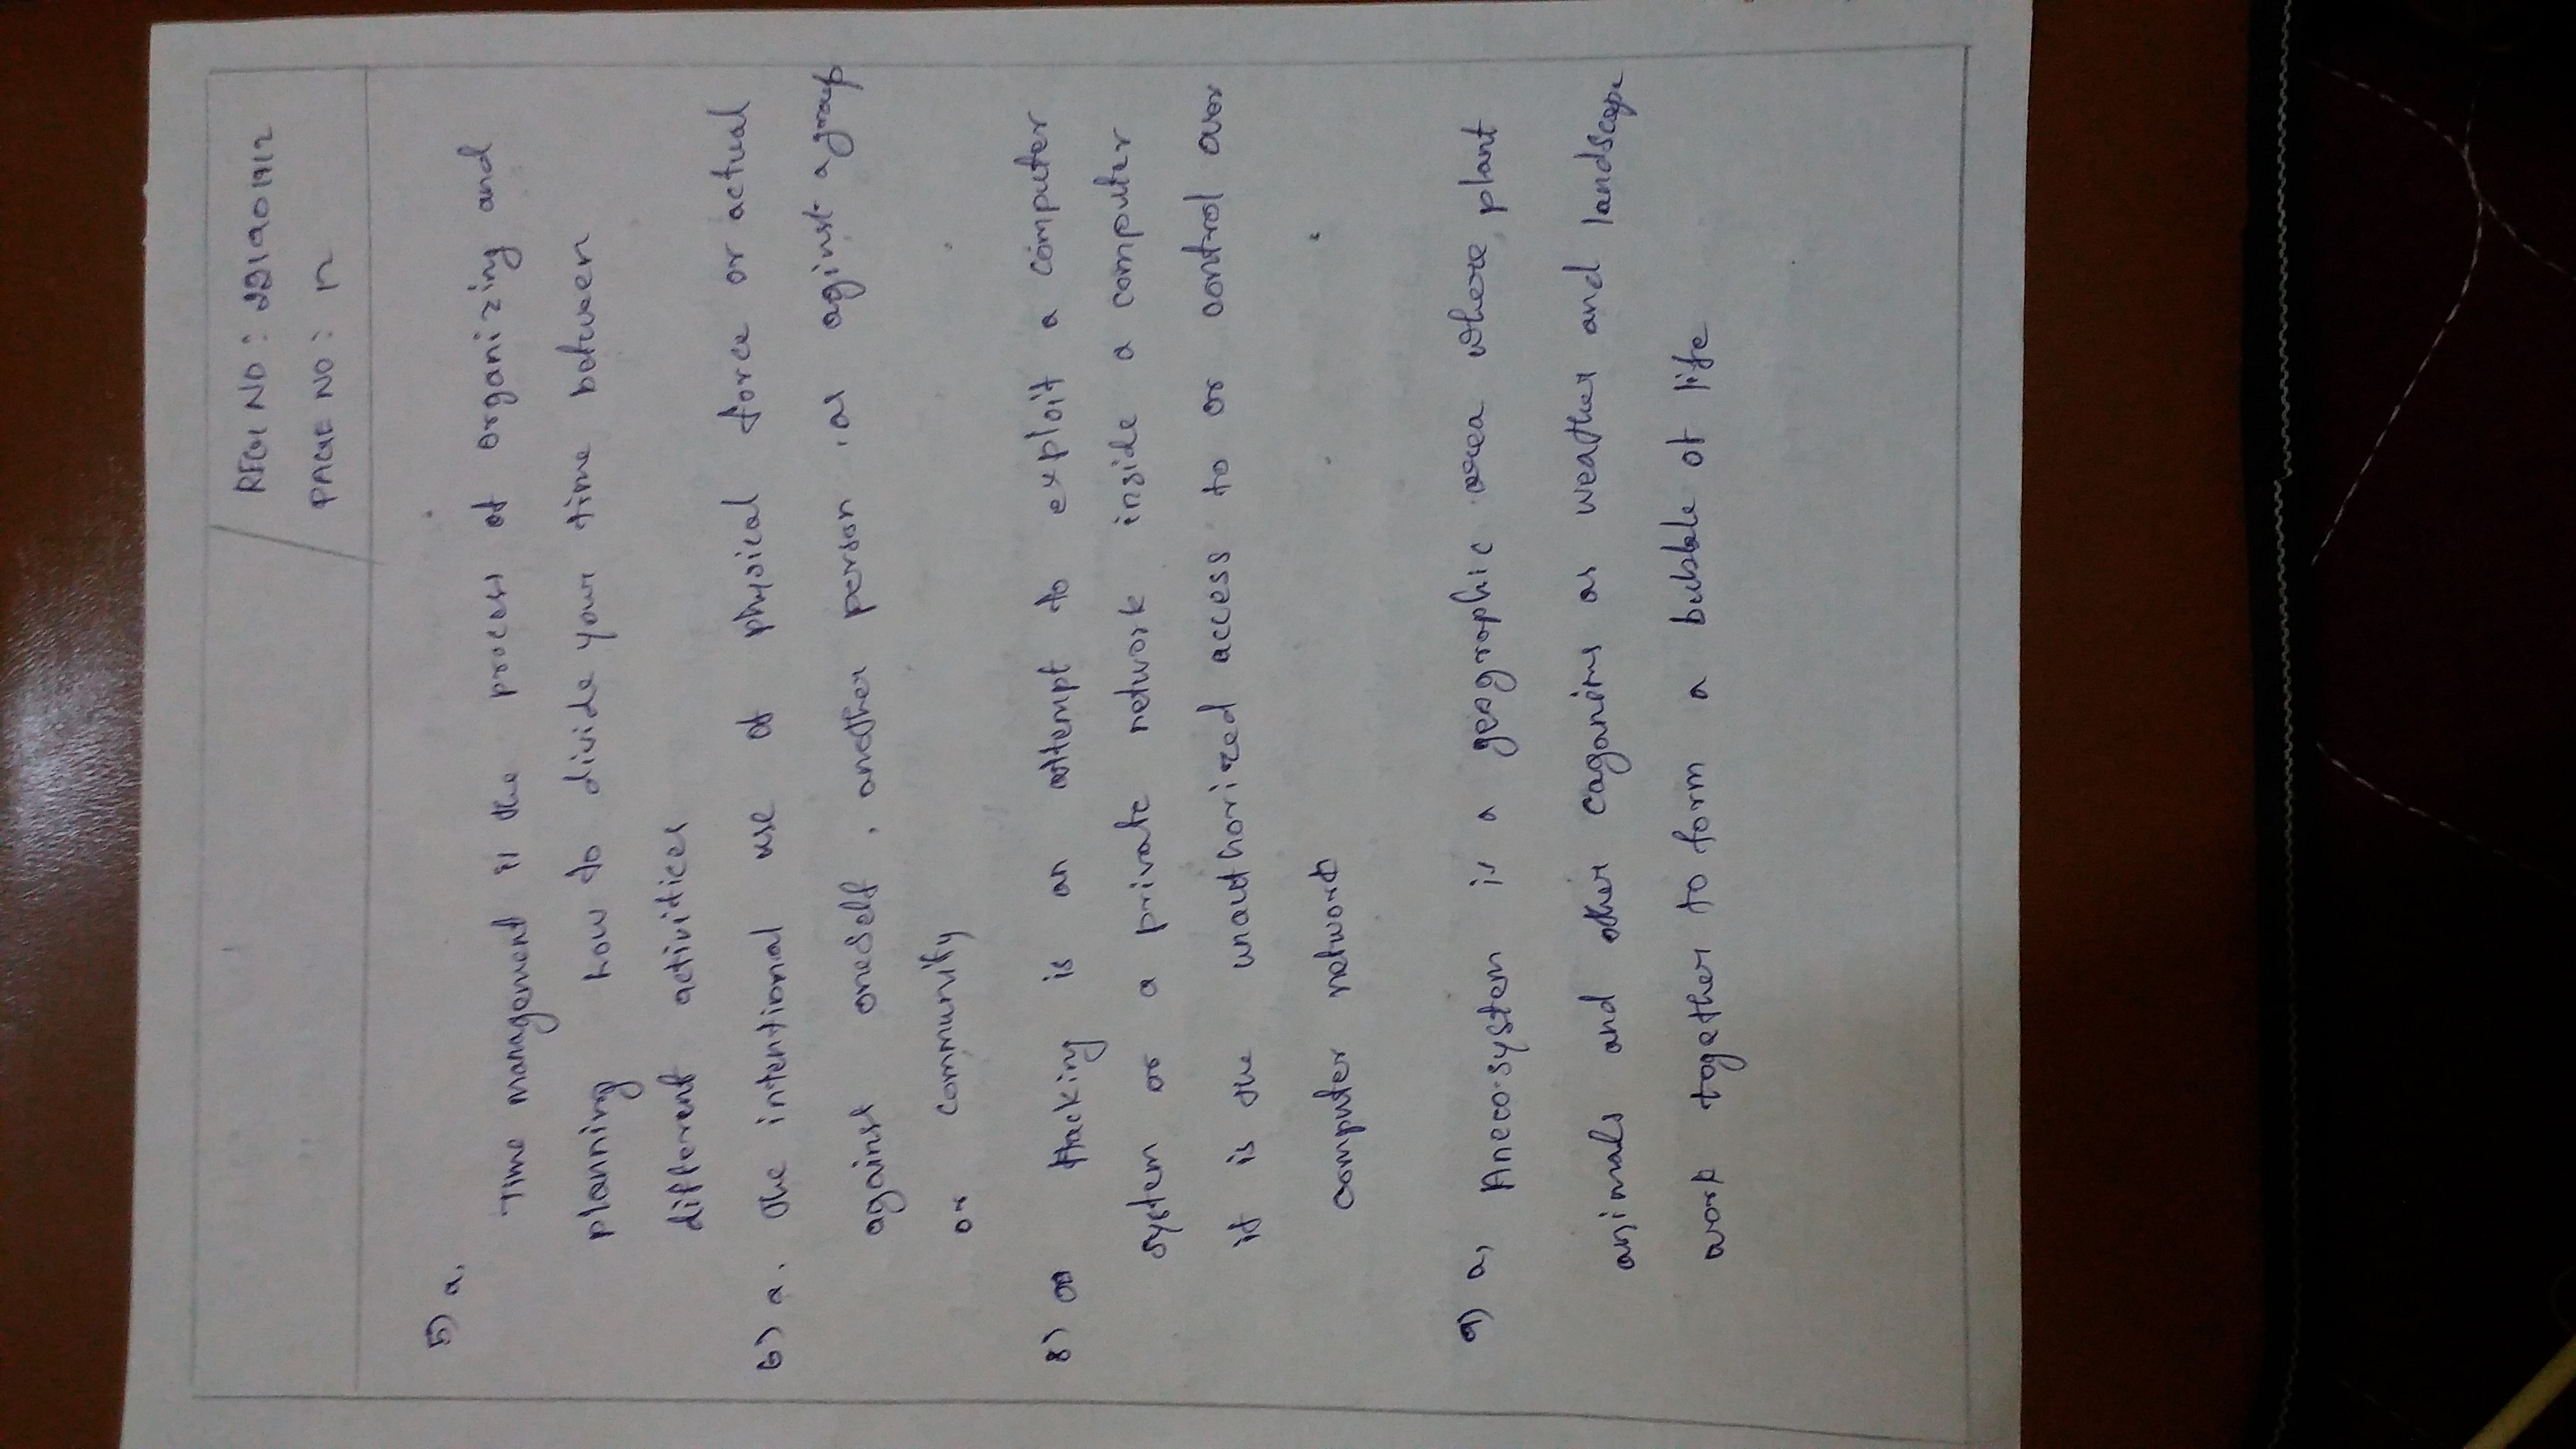 REG NO: 221901912
PAGE NO: 12
5) a.
Time management is the process of organizing and
planning how to divide your time between
different activitices
6) a. The intentional use of physical force or actual
against oneself, another person, or aginst a group
or community
8) a Hacking is an attempt to exploit a computer
system or a private network inside a computer
it is the unauthorized access to or control over
computer network
9) a, An eco-system is a geographic area where plant
animals and other as weather and landscape
work together to form a bubble of life